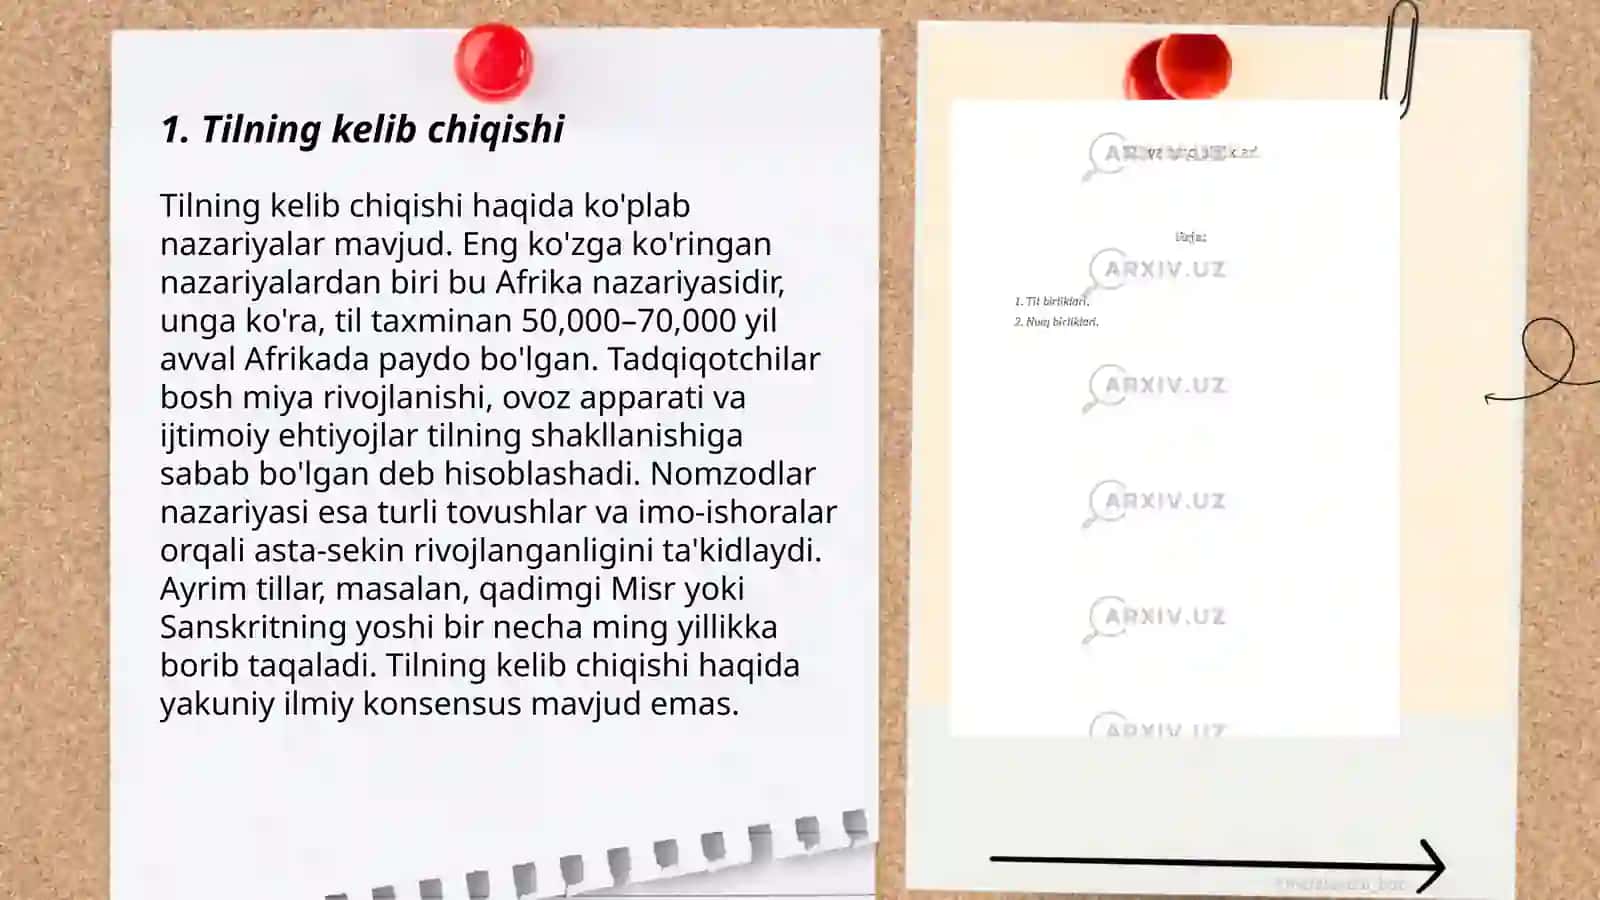 1. Tilning kelib chiqishi
Tilning kelib chiqishi haqida ko'plab
nazariyalar mavjud. Eng ko'zga ko'ringan
nazariyalardan biri bu Afrika nazariyasidir,
unga ko'ra, til taxminan 50,000–70,000 yil
avval Afrikada paydo bo'lgan. Tadqiqotchilar
bosh miya rivojlanishi, ovoz apparati va
ijtimoiy ehtiyojlar tilning shakllanishiga
sabab bo'lgan deb hisoblashadi. Nomzodlar
nazariyasi esa turli tovushlar va imo-ishoralar
orqali asta-sekin rivojlanganligini ta'kidlaydi.
Ayrim tillar, masalan, qadimgi Misr yoki
Sanskritning yoshi bir necha ming yillikka
borib taqaladi. Tilning kelib chiqishi haqida
yakuniy ilmiy konsensus mavjud emas.
Reja:
ARXIV.UZ
1. Til birliklari.
2. Nutq birliklari.
ARXIV.UZ
ARXIV.UZ
ARXIV.UZ
ARXIV.UZ